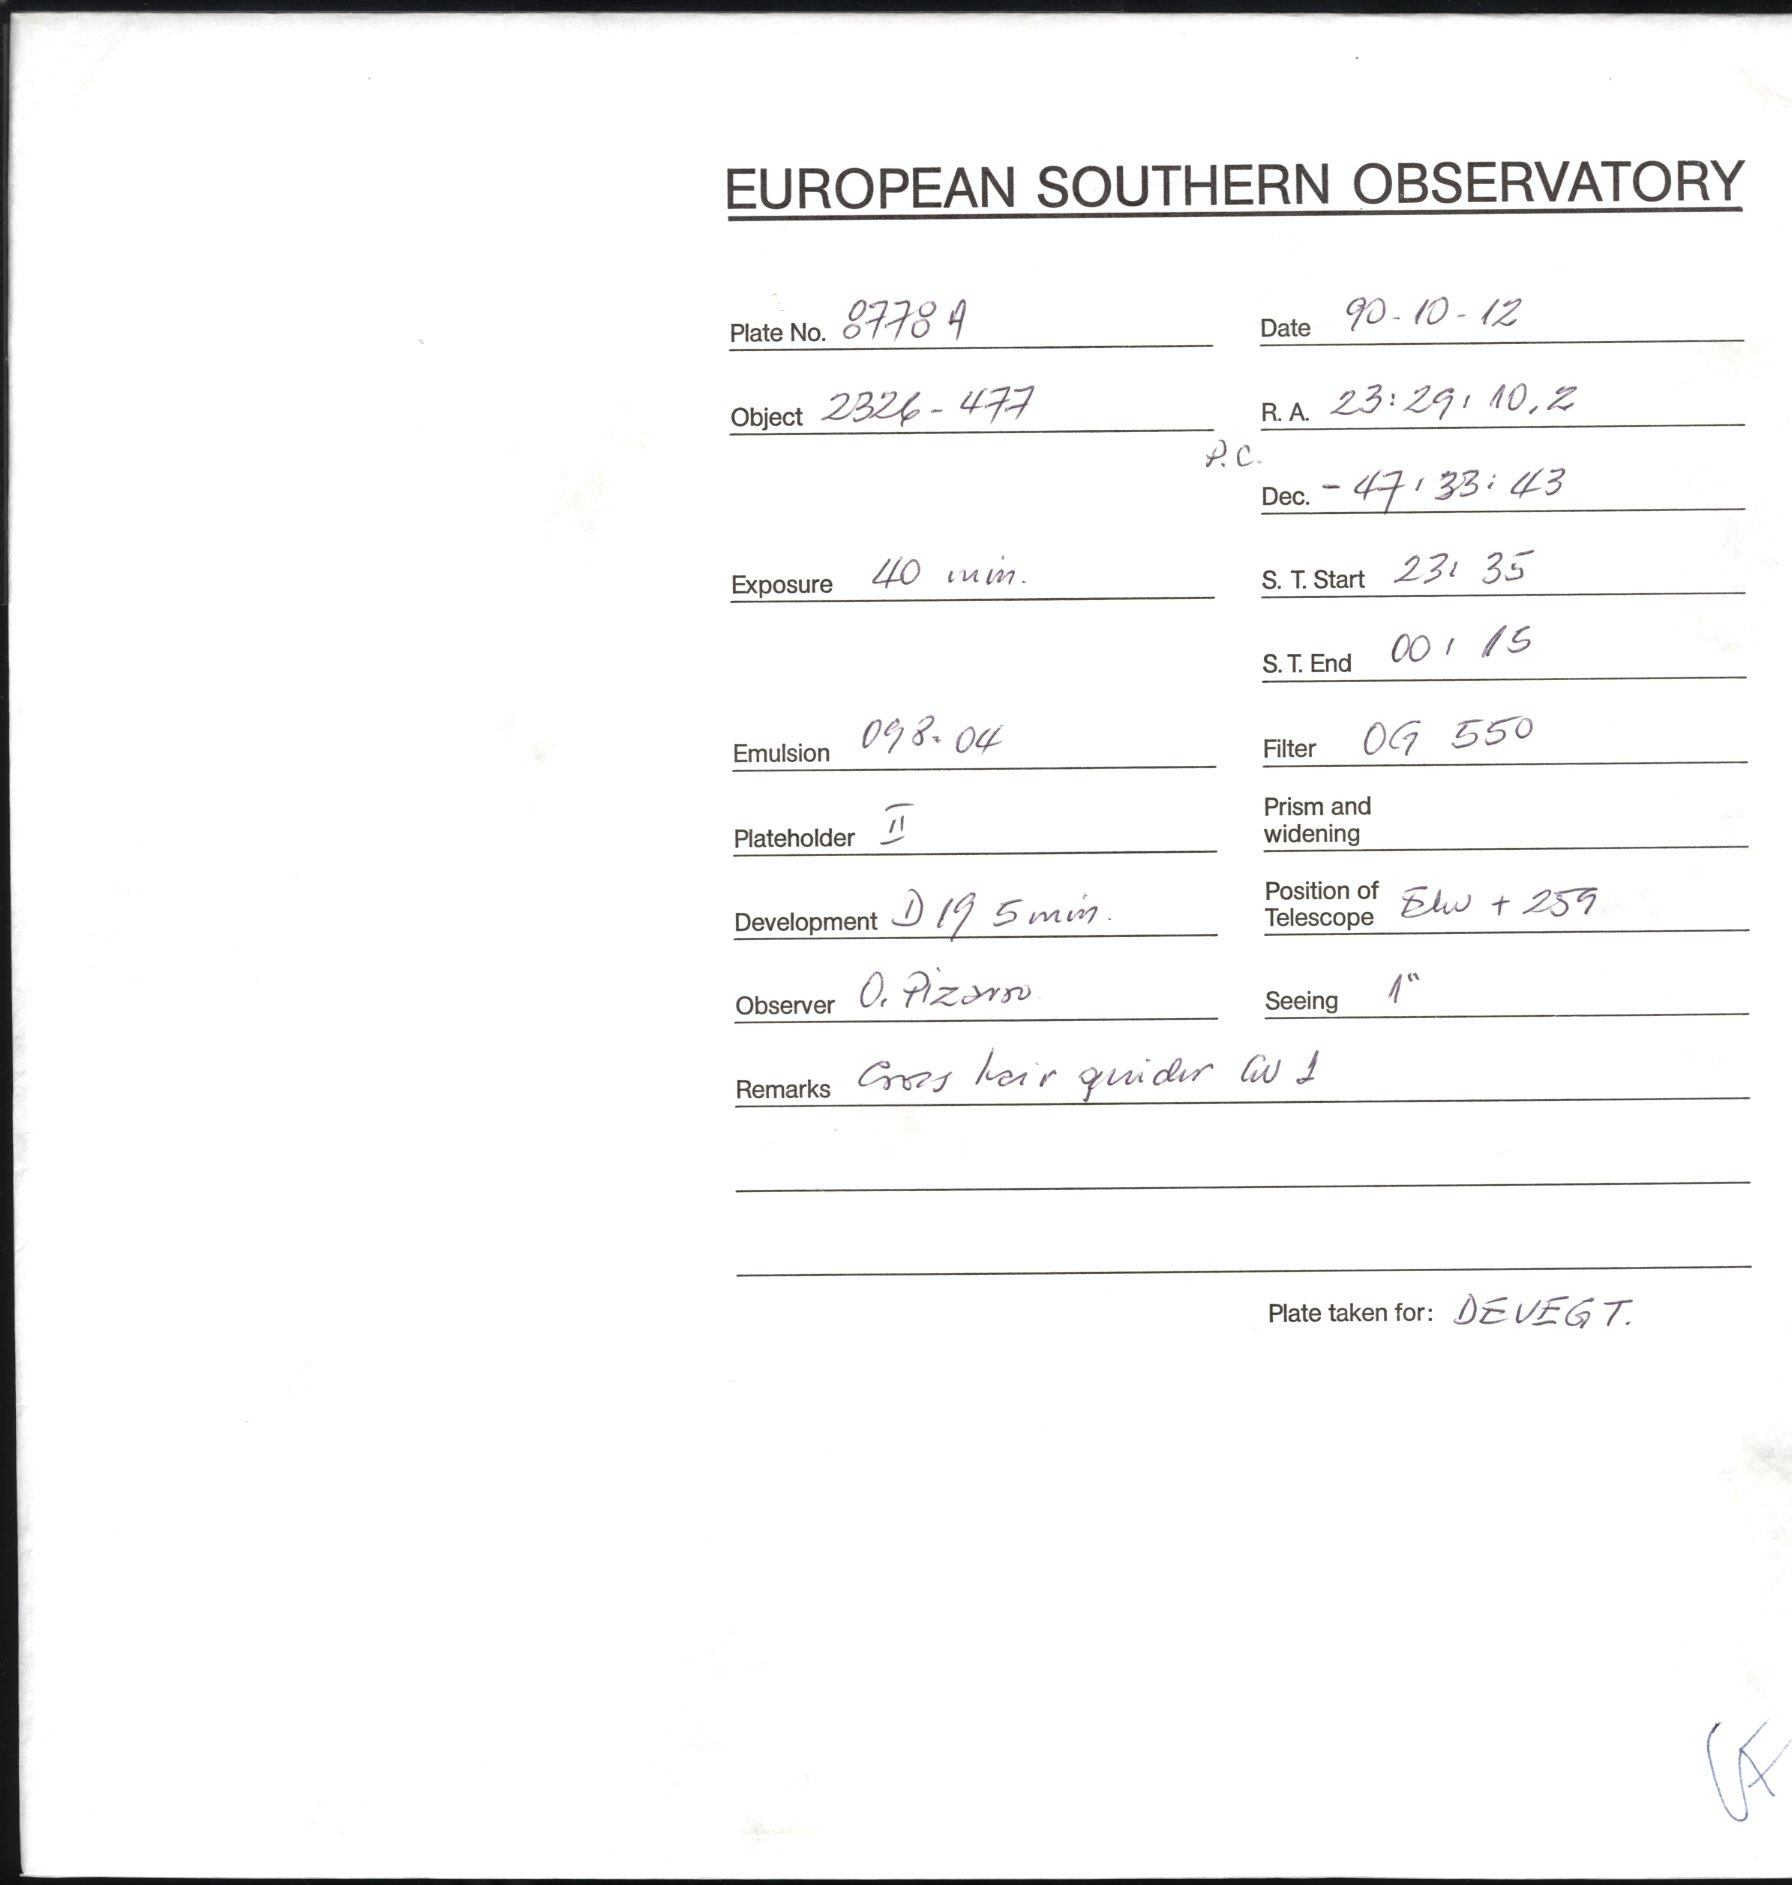 EUROPEAN SOUTHERN OBSERVATORY
Plate No. 8778 A
Date 90-10-12
Object 2326-477
R. A. 23:29:10.2
P.C.
Dec. -47:33:43
Exposure 40 min.
S. T. Start 23:35
S. T. End 00:15
Emulsion 098-04
Filter OG 550
Plateholder II
Prism and
widening
Development D19 5 min.
Position of
Telescope + 259
Observer O. Pizarro
Seeing 1"
Remarks Cross hair guider GW 1
Plate taken for: DEVEGT.